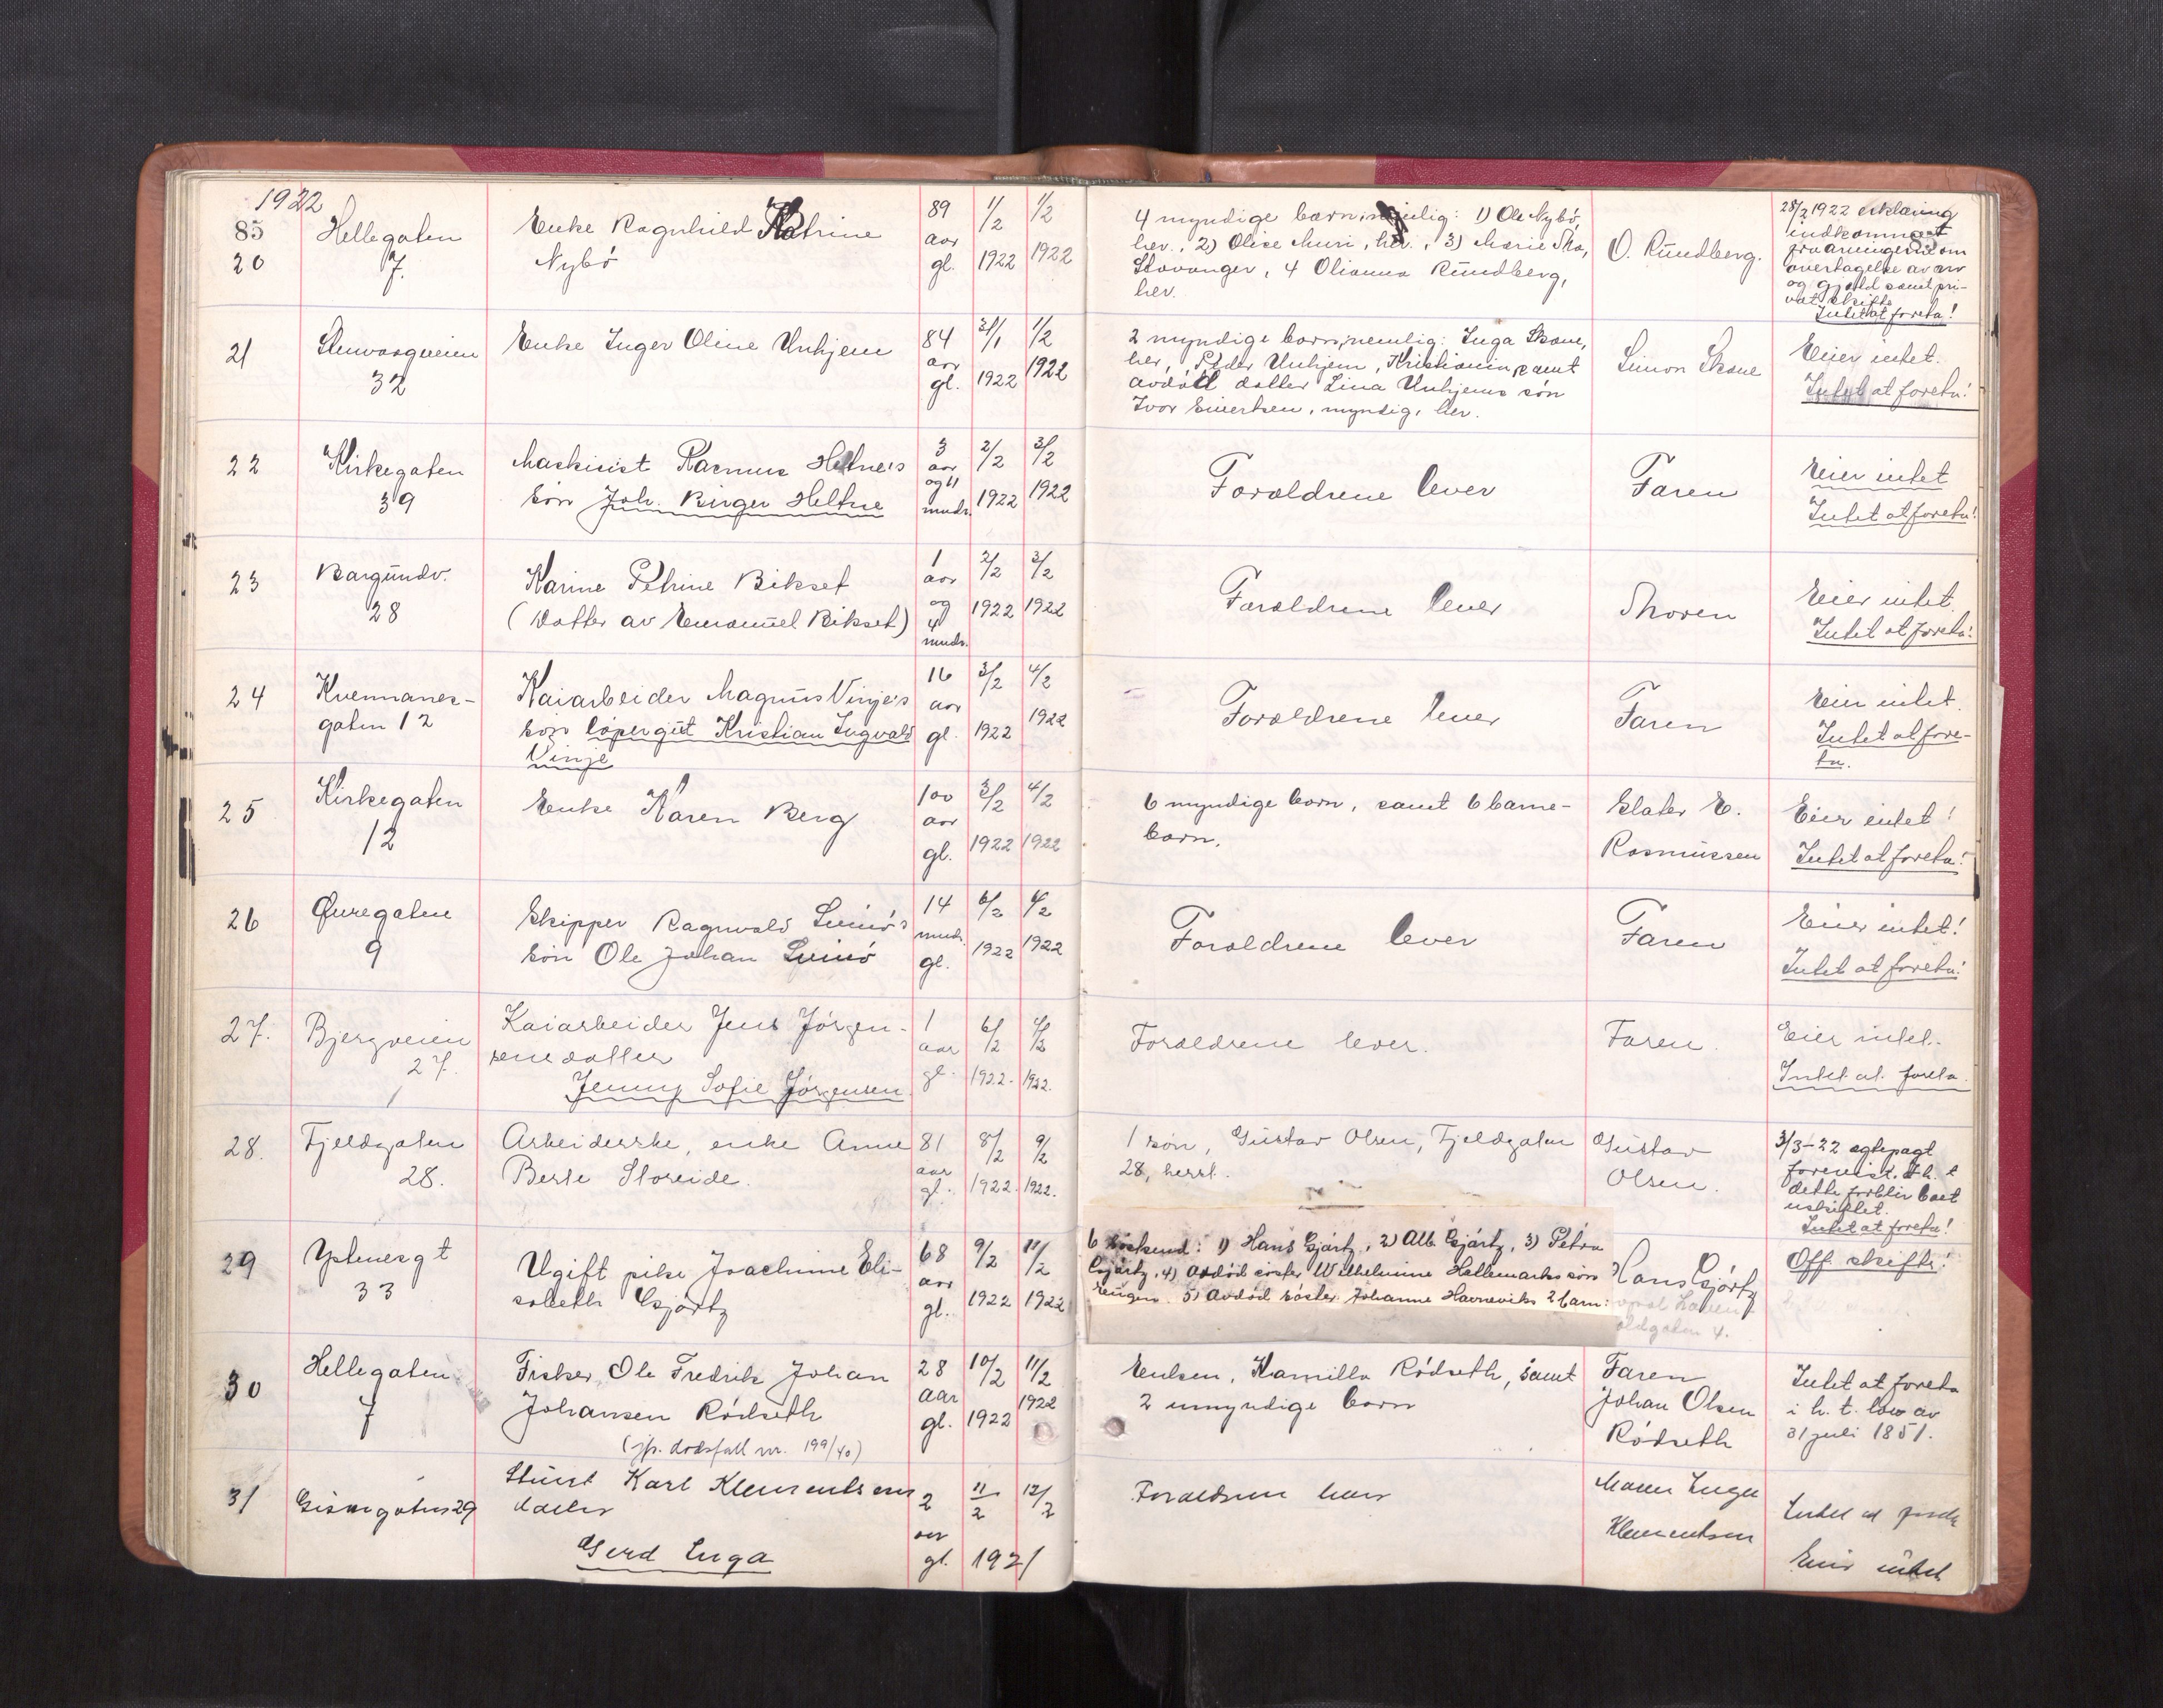 1922
85
20 Hellegaten 7. Enke Ragnhild Katrine 89 1/2 1/2 4 myndige børn, nemlig: 1) Ole Nybö, O. Rundberg. 28/2 1922 erklæring
Nybö aar gl. 1922 1922 her., 2) Olise Muri, her., 3) Marie Ska, indkommet
Stavanger, 4 Olianna Rundberg, fra arvingerne om
her. overtagelse av arv
og gjæld samt pri-
vat skifte
Intet at foreta!
21 32 Enke Inger Oline Unhjem 84 31/1 1/2 2 myndige børn, nemlig: Inga Skane, Simon Skane Eier intet.
aar gl. 1922 1922 her, Peder Unhjem, Kristiania, samt Intet at foreta!
avdöd datter Lina Unhjems sön
Ivar Eivertsen, myndig, her.
22 Kirkegaten 39 Maskinist Rasmus Heltne's 3 aar og 11 mndr. 2/2 3/2 Forældrene lever Faren Eier intet
sön Joh. Birger Heltne 1922 1922 Intet at foreta!
23 Borgundv. 28 Karine Petrine Bikset 1 aar og 4 mndr. 2/2 3/2 Forældrene lever Moren Eier intet.
(Datter av Emanuel Bikset) 1922 1922 Intet at foreta!
24 Kvennanes- Kaiarbeider Magnus Vinje's 16 3/2 4/2 Forældrene lever Faren Eier intet.
gaten 12 sön löpergut Kristian Ingvald aar gl. 1922 1922 Intet at fore-
Vinje ta.
25 Kirkegaten 12 Enke Karen Berg 100 3/2 4/2 6 myndige børn, samt 6 barne- Slakter E. Eier intet!
aar gl. 1922 1922 børn. Rasmussen Intet at foreta!
26 Øwregaten 9 Skipper Ragnvald 14 6/2 6/2 Forældrene lever Faren Eier intet!
sön Ole Johan mndr. gl. 1922 1922 Intet at foreta!
27. Bjergveien 27. Kaiarbeider Jens Jörgen- 1 6/2 Forældrene lever. Faren. Eier intet.
sens datter aar gl. 1922. 1922. Intet at foreta.
Jenny Sofie Jörgensen
28. Fjeldgaten 28. Arbeiderske, enke Anne 81 8/2 9/2 1 sön, Gustav Olsen, Fjeldgaten Gustav 3/3-22 egtepagt
Berte Storeide. aar gl. 1922. 1922. 28, herst. Olsen. forevist. I h. t
dette forblir boet
uskiftet.
Intet at foreta!
29 Ystenesgt 33 Ugift pike Joachime Eli- 68 9/2 10/2 6 söskend: 1) Hans Gjörtz, 2) Alb. Gjörtz, 3) Petra Hans Gjörtz Off. skifte!
sabeth Gjörtz aar gl. 1922 1922 Gjörtz, 4) Avdöd söster Wilhelmine Hellemarks sön
Eugen. 5) Avdöd söster Johanne Havneviks 2 barn:
4.
30 Hellegaten 7 Fisker Ole Fredrik Johan 28 10/2 11/2 Enken, Kamilla Rödseth, samt Faren Intet at foreta
Johansen Rödseth aar gl. 1922 1922 2 umyndige börn Johan Olsen i h. t. lov av
(jfr. dødsfall nr. 199/40) Rödseth 31 juli 1851.
31 29 Karl Klementsens 2 11/2 12/2 Forældrene lever Inga Intet at foreta
datter aar gl. 1921 Klementsen Eier intet
Gerd Inga